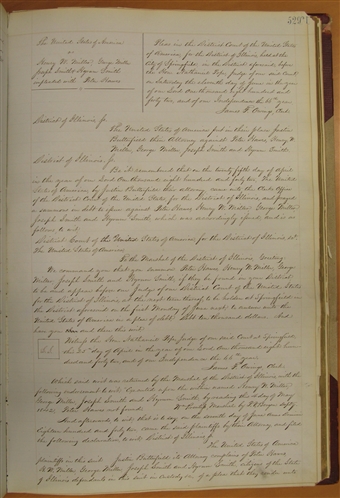 529
The United States of America
vs
Henry W. Miller, George Miller
Joseph Smith & Hyrum Smith
impleaded with Peter Haws
Pleas in the District Court of the United States
of America, for the District of Illinois, held at the
City of Springfield, in the District aforesaid, before
the Hon. Nathaniel Pope, Judge of said Court
on Saturday the eleventh day of June in the year
of our Lord One thousand eight hundred and
forty two, and of our Independence the 66th year
James F. Owings, Clerk
District of Illinois, ss
The United States of America put in their place Justin
Butterfield their Attorney against Peter Haws, Henry W.
Miller, George Miller, Joseph Smith and Hyrum Smith.
District of Illinois, ss.
Be it remembered that on the twenty fifth day of April
in the year of our Lord One thousand eight hundred and forty two, The United
States of America by Justin Butterfield their Attorney, came into the Clerks Office
of the District Court of the United States for the District of Illinois, and prayed
a summons in debt to issue against Peter Haws, Henry W. Miller, George Miller,
Joseph Smith and Hyrum Smith, which was accordingly issued, and is as
follows to wit.
District Court of the United States of America for the District of Illinois Sct.
The United States of America
To the Marshal of the District of Illinois, Greeting
We command you that you summon Peter Haws, Henry W. Miller, George
Miller, Joseph Smith and Hyrum Smith if they be found in your District
to be and appear before our Judge of our District Court of the United States
for the District of Illinois at the next term thereof to be holden at Springfield in
the District aforesaid on the first Monday of June next to answer unto the
United States of America in a plea of debt, Debt ten thousand dollars. And
have you then and there this writ.
L.S.
Witness the Hon. Nathaniel Pope Judge of our said Court at Springfield,
the 25th day of April in the year of our Lord One thousand eight hun-
dred and forty two, and of our Independence the 66th year
James F. Owings Clerk.
Which said writ was returned by the Marshal of the District of Illinois with the
following endorsement to wit: "Executed upon the within named Henry W. Miller,
George Miller, Joseph Smith and Hyrum Smith by reading this
Peter Haws not found.
And afterwards to wit, that is to say, on the
Eighteen hundred and forty two, came the said plaintiffs by their Attorney and filed
the following declaration to wit: District of Illinois ss.
The United States of America
plaintiffs in this suit, Justin Butterfield its Attorney complains of Peter Haws,
H. W. Miller, George Miller, Joseph Smith and Hyrum Smith citizens of the State
of Illinois defendants in this suit